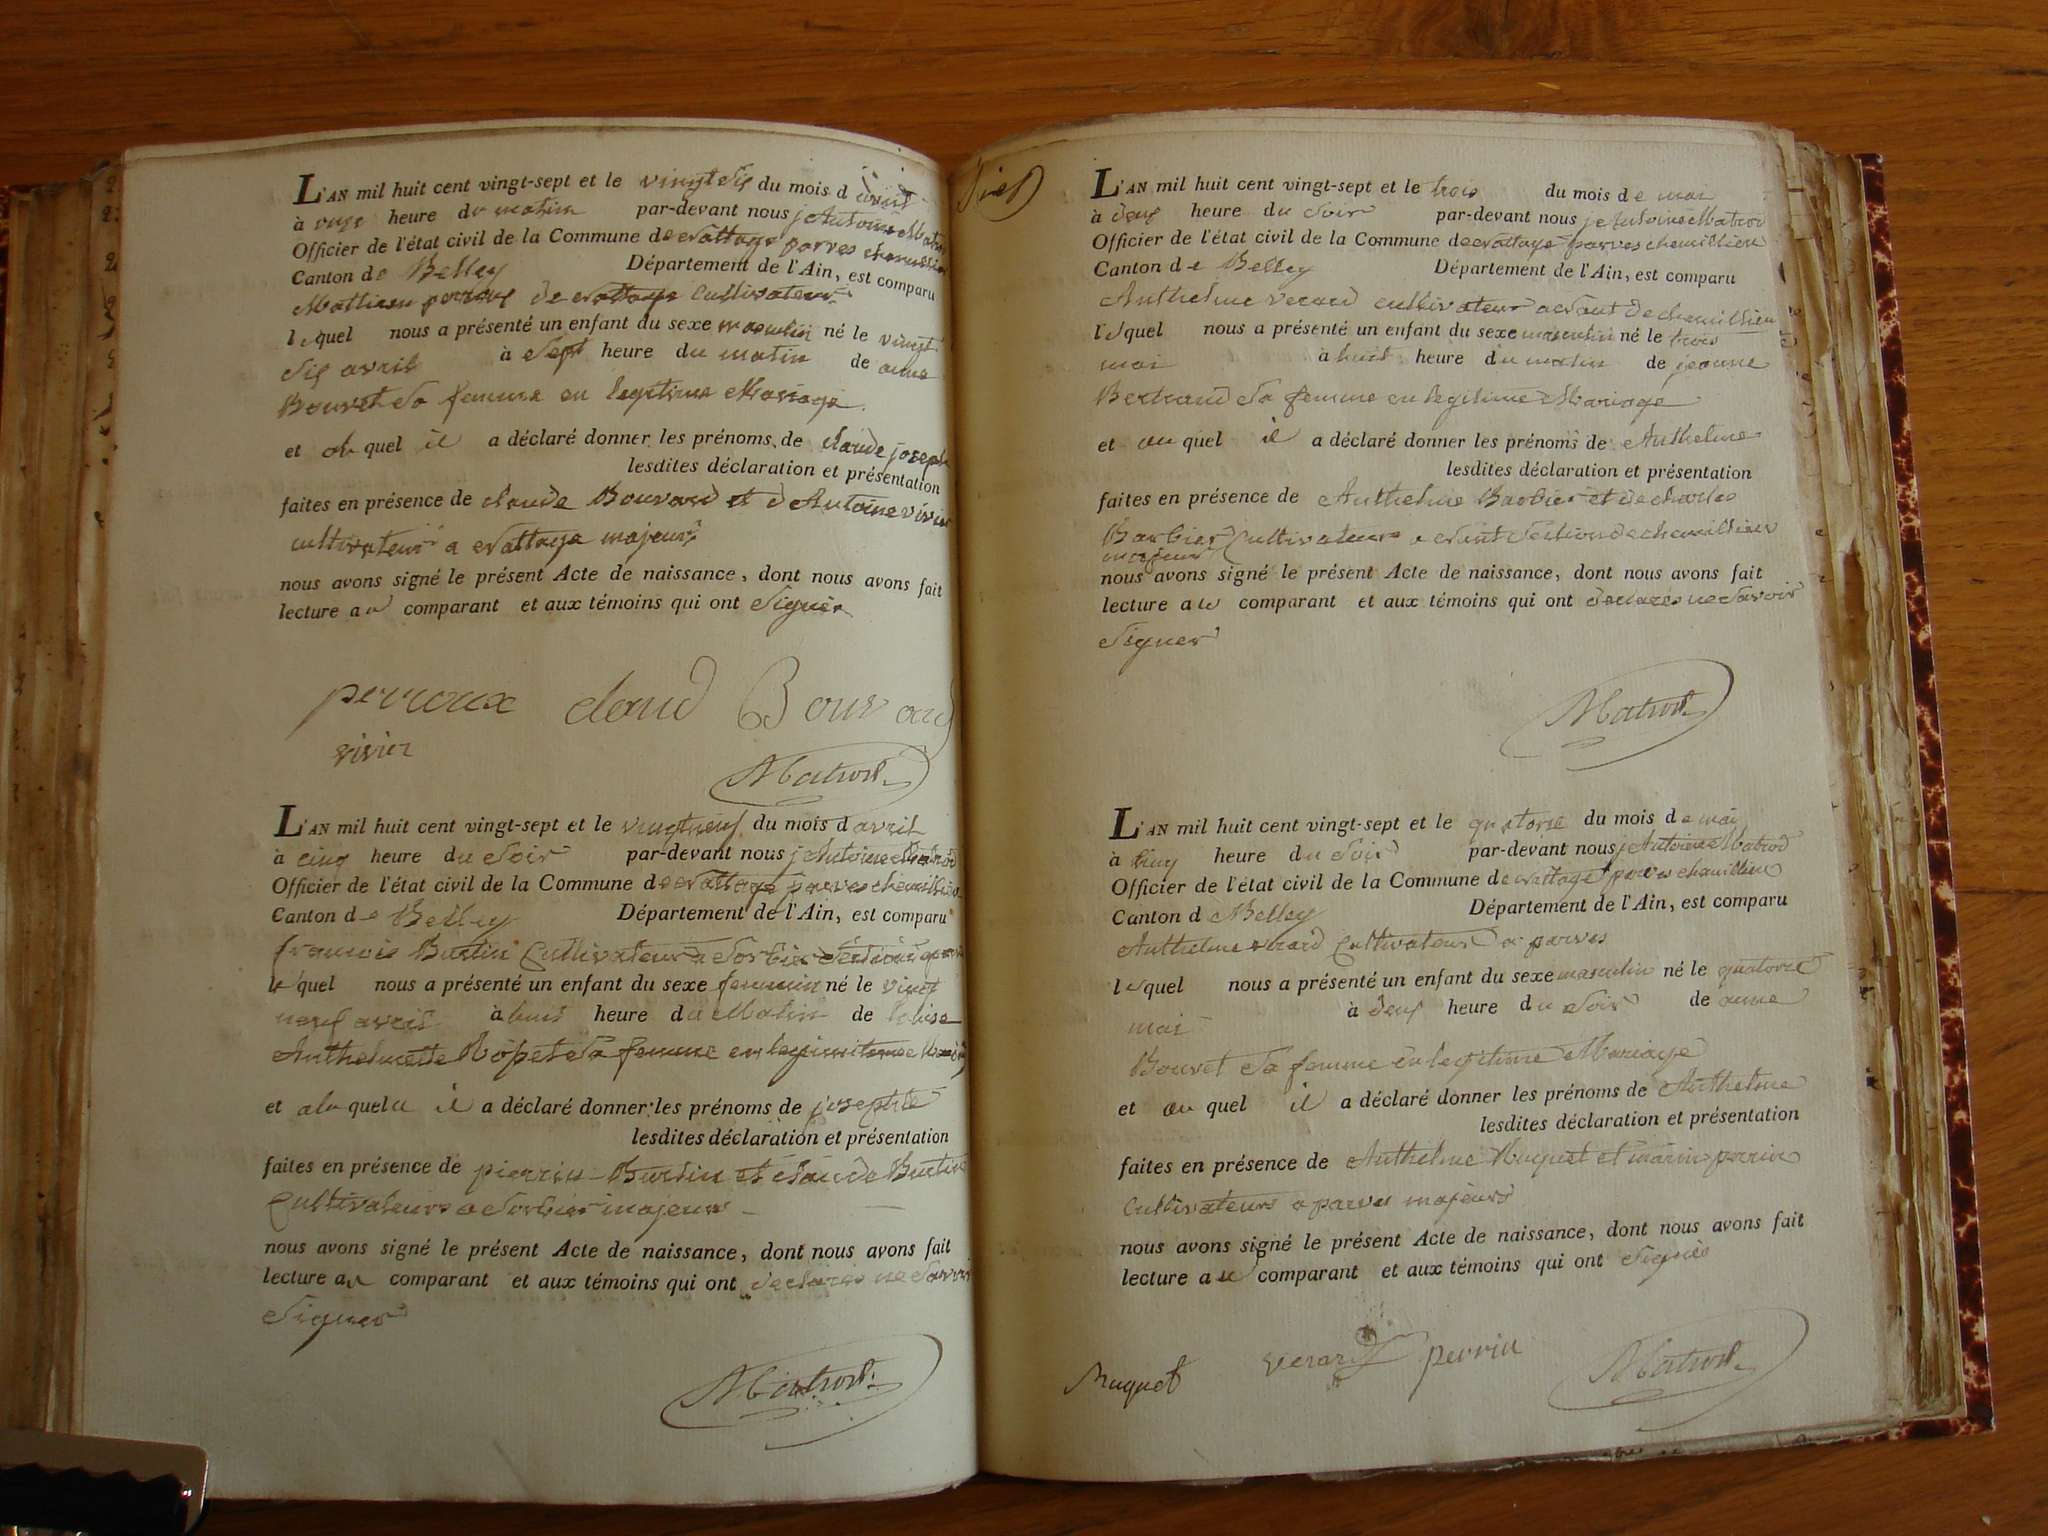 L'AN mil huit cent vingt-sept et le vingt sis du mois d avril
à onze heure du matin par-devant nous je Antoine Matrod
Officier de l'état civil de la Commune de parves
Canton de Belley Département de l'Ain, est comparu
Mathieu cultivateur
lequel nous a présenté un enfant du sexe masculin né le vingt
sis avril à sept heure du matin de anne
Bouvet sa femme en legitime Mariage
et au quel il a déclaré donner les prénoms de claude joseph
lesdites déclaration et présentation
faites en présence de claude Bouvard et d Antoine vivier
cultivateur a majeurs
nous avons signé le présent Acte de naissance, dont nous avons fait
lecture au comparant et aux témoins qui ont signer
perroux claud Bouvard
vivier
Matrod
L'AN mil huit cent vingt-sept et le vingtneuf du mois d avril
à cinq heure du soir par-devant nous je Antoine Matrod
Officier de l'état civil de la Commune de parves
Canton de Belley Département de l'Ain, est comparu
francois Burtin Cultivateur a Sorbier
lequel nous a présenté un enfant du sexe feminin né le vingt
neuf avril à huit heure du Matin de
Anthelmette sa femme en
et a la quele il a déclaré donner les prénoms de josephte
lesdites déclaration et présentation
faites en présence de pierrin Burtin et claude Burtin
Cultivateurs a Sorbier majeurs
nous avons signé le présent Acte de naissance, dont nous avons fait
lecture au comparant et aux témoins qui ont declarés ne savoir
signer
Matrod
L'AN mil huit cent vingt-sept et le trois du mois de mai
à deux heure du soir par-devant nous je Antoine Matrod
Officier de l'état civil de la Commune de parves chemillieu
Canton de Belley Département de l'Ain, est comparu
Anthelme verard cultivateur de chemillieu
lequel nous a présenté un enfant du sexe masculin né le trois
mai à huit heure du matin de jeanne
Bertrand sa femme en legitime Mariage
et au quel il a déclaré donner les prénoms de Anthelme
lesdites déclaration et présentation
faites en présence de Anthelme Barbier et de charles
Barbier Cultivateurs a section de chemillieu
majeurs
nous avons signé le présent Acte de naissance, dont nous avons fait
lecture au comparant et aux témoins qui ont declarés ne savoir
signer
Matrod
L'AN mil huit cent vingt-sept et le quatorze du mois de mai
à cinq heure du soir par-devant nous je Antoine Matrod
Officier de l'état civil de la Commune de parves chemillieu
Canton d Belley Département de l'Ain, est comparu
Anthelme verard Cultivateur a parves
lequel nous a présenté un enfant du sexe masculin né le quatorze
mai à deux heure du soir de anne
Bouvet sa femme en legitime Mariage
et au quel il a déclaré donner les prénoms de Anthelme
lesdites déclaration et présentation
faites en présence de Anthelme Muguet et marin perrin
Cultivateurs a parves majeurs
nous avons signé le présent Acte de naissance, dont nous avons fait
lecture au comparant et aux témoins qui ont signés
Muguet verard perrin Matrod